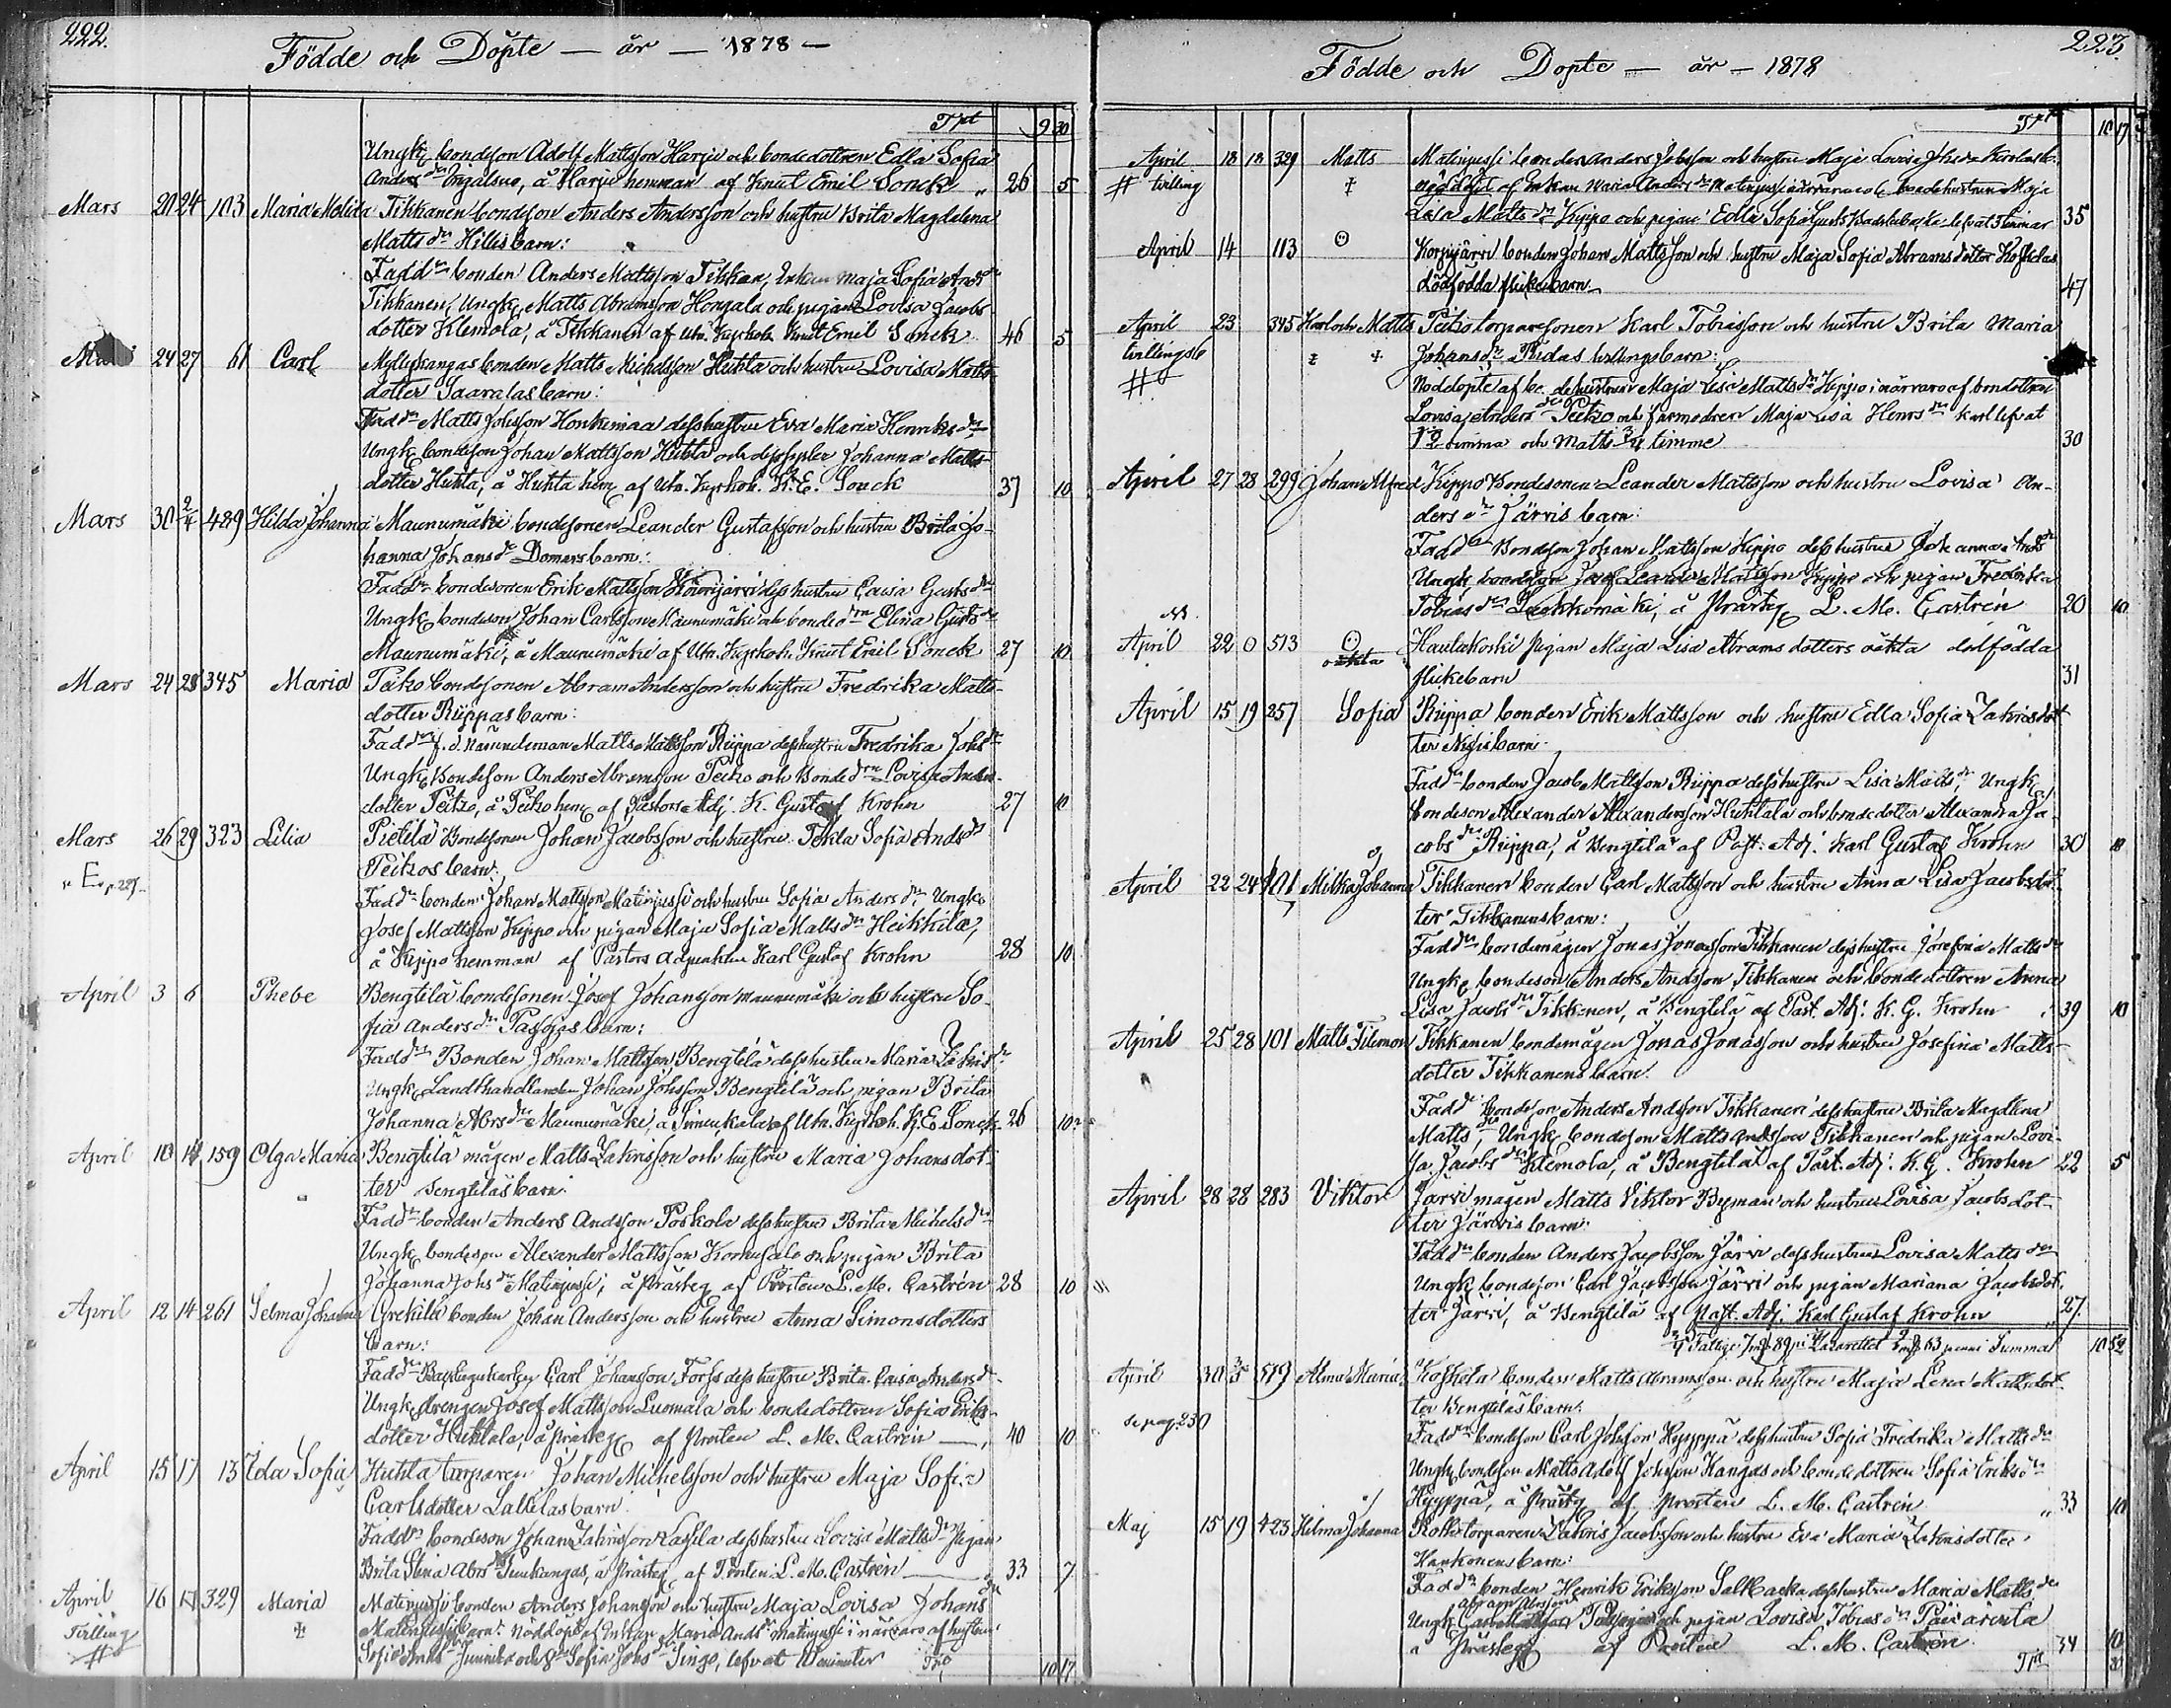 222.
Födde och Döpte — år — 1878 —
Trpt 9 30
Ungk. bondeson Adolf Mattsson Harju och bondedottren Edla Sofia
Anders dr Ingalsuo, å Harju hemman af Knut Emil Sonck " 26 5
Mars 20 24 103 Maria Molida Tikkanen bondeson Anders Andersson och hustru Brita Magdelena
Matts dr Hillis barn:
Fadd rn bonden Anders Mattsson Tikkan, Enkan Maja Sofia And dr
Tikkanen, Ungk. Matts Abramsson Hongala och pigan Lovisa Jacobs
dotter Klemola, å Tikkanen af Utn. Kyrkoh. Knut Emil Sonck 46 5
Mars 24 27 61 Carl Myllykangas bonden Matts Michelsson Huhta och hustru Lovisa Matts
dotter Saaralas barn:
Fadd rn Matts Johsson Honkimaa dess hustru Eva Maria Henriks dr
Ungk. bondeson Johan Mattsson Huhta och Johanna Matts-
dotter Huhta, å Huhta hem. af Utn. Kyrkoh. K. E. Sonck 37 10
Mars 30 2/4 489 Hilda Johanna Maunumäki bondesonen Leander Gustafsson och hustru Brita Jo-
hanna Johans dr Domars barn:
Fadd rn bondesonen Erik Mattsson dess hustru Caisa Gusts dr
Ungk. bondeson Johan Carlsson Maunumäki och bonded rn Elina Gusts dr
Maunumäki, å Maunumäki af Utn. Kyrkoh. Knut Emil Sonck 27 10
Mars 24 28 345 Maria Peitzo bondesonen Abram Andersson och hustru Fredrika Matts-
dotter Riippas barn:
Fadd rn f. d. Nämndeman Matts Mattsson Riippa dess hustru Fredrika Johs dr
Ungk. Bondeson Anders Abramsson Peitzo och Bonded rn Lovisa Anders-
dotter Peitzo, å Peitzo hem. af Pastors Adj. K. Gustaf Krohn 27 10
Mars 26 29 323 Lilia Pietilä Bondesonen Johan Jacobsson och hustru Tekla Sofia Ands dr
Peitzos barn.
Fadd rn bonden Johan Mattsson Matinjussi och hustru Sofia Anders dr Ungk.
Josef Mattsson Kippo och pigan Maja Sofia Matts dr Heikkilä,
å Kippo hemman af Pastors Adjunkten Karl Gustaf Krohn 28 10
April 3 6 Phebe Bengtilä bondesonen Josef Johansson Maunumäki och hustru So-
fia Anders dr Passojas barn:
Fadd rn Bonden Johan Mattsson Bengtilä dess hustru Maria Zakris dr
Ungk. Landthandlanden Johan Johsson Bengtilä och pigan Brita
Johanna Abrs dr Maunumäki, å af Utn. Kyrkoh. K. E. Sonck 26 10
April 10 14 159 Olga Maria Bengtilä mågen Matts Zakrisson och hustru Maria Johansdot-
ter Bengtiläs barn:
Fadd rn bonden Anders Andsson Poskola dess hustru Brita Michels dr
Ungk. bondeson Alexander Mattsson och pigan Brita
Johanna Johs dr Matinjussi, å Prästeg. af Prosten L. M. Castrén 28 10
April 12 14 261 Selma Johanna Grekilä bonden Johan Andersson och hustru Anna Simonsdotters
barn:
Fadd rn Carl Johansson Forss dess hustru Brita Caisa Anders dr
Ungk. drengen Josef Mattsson Luomala och bondedottren Sofia Eriks-
dotter Huhtala, å prästeg. af Prosten L. M. Castrén 40 10
April 15 17 13 Ida Sofia Huhta torparen Johan Michelsson och hustru Maja Sofia
Carlsdotter Lassilas barn.
Fadd rn bondeson Johan Zakrisson Lassila dess hustru Lovisa Matts dr Pigan
Brita Stina Abrs Tuunkangas, å Prästeg. af Prosten L. M. Castrén 33 7
April 16 17 329 Maria Matinjussi bonden Anders Johansson och hustru Maja Lovisa Johans dr
Trilling Matinjussis barn. Nöddöpt af Enkan Maria Ands dr Matinjussi i närvaro af hustru
Sofia Ands dr Junnila och Sofia Johs dr Singo, lefvat 10 minuter Trp 10 17
223.
Födde och Döpte — år — 1878
Trpt 10 17
April 18 18 329 Matts Matinjussi bonden Anders Johsson och hustru Maja Lovisa
# tvilling nöddöpt af Enkan Maria Anders dr Matinjussi i närvaro af bondehustrun Maja
Lisa Matts dr Kippo och pigan Edla Sofia lefvat timmar 35
April 14 113 Korpijärvi bonden Johan Mattsson och hustru Maja Sofia Abrams dotter Koskelas
dödfödda flickebarn 47
April 23 345 Karl och Matts Peitzo torparesonen Karl Tobiasson och hustru Brita Maria
tvillings b Johans dr Pudas tvillingsbarn:
# Nöddöpte af bondehustrun Maja Lisa Matts dr Kippo i närvaro af bondottren
Lovisa Anders dr Peitzo och farmodren Maja Lisa Henrs dr Karl lefvat
1/2 timma och Matts 3/4 timme 30
April 27 28 299 Johan Alfred Kippo Bondesonen Leander Mattsson och hustru Lovisa An-
ders dr Järvis barn:
Fadd rn Bondeson Johan Mattsson Kippo dess hustru Johanna Ands dr
Ungk. bondeson Josef Leander Mattsson Kippo och pigan Fredrika
Tobias dr Luokkomäki, å Prästg. L. M. Castrén 20 10
April 22 0 573 oäkta Hautakoski pigan Maja Lisa Abrams dotters oäkta dödfödda
flickebarn 31
April 15 19 257 Sofia Riippa bonden Erik Mattsson och hustru Edla Sofia Zakrisdot-
ter Nisis barn.
Fadd rn bonden Jacob Mattsson Riippa dess hustru Lisa Matts dr, Ungk.
bondeson Alexander Alexandersson Huhtala och bondedotter Alexandra Ja-
cobs dr Riippa, å Bengtilä af Past. Adj. Karl Gustaf Krohn 30 10
April 22 24 101 Milka Johanna Tikkanen bonden Carl Mattsson och hustru Anna Lisa Jacobsdot-
ter Tikkanens barn:
Fadd rn bondemågen Jonas Jonasson Tikkanen dess hustru Josefina Matts dr
Ungk. bondeson Anders Andsson Tikkanen och bondedottren Anna
Lisa Jacobs dr Tikkanen, å Bengtilä af Past. Adj. K. G. Krohn 39 10
April 25 28 101 Matts Filemon Tikkanen bondemågen Jonas Jonasson och hustru Josefina Matts-
dotter Tikkanens barn.
Fadd. bondeson Anders Andsson Tikkanen dess hustru Brita Magdlena
Matts dr, Ungk. bondeson Matts Andsson Tikkanen och pigan Lovi-
sa Jacobs dr Klemola, å Bengtilä af Past. Adj. K. G. Krohn 22 5
April 28 28 283 Viktor Järvi mågen Matts Viktor Byman och hustru Lovisa Jacobsdot-
ter Järvis barn:
Fadd rn bonden Anders Jacobsson Järvi dess hustru Lovisa Matts dr
Ungk. bondeson Carl Jacobsson Järvi och pigan Mariana Jacobsdot-
ter Järvi, å Bengtilä af Past. Adj. Karl Gustaf Krohn " 27.
Fattige 7 89 pi Lazarettet 63 penni Summa 10 52
April 30 3/5 579 Alma Maria Koskela bonden Matts Abramsson och hustru Maja Lena Mattsdot-
ter Bengtiläs barn:
se pag. 230 Fadd rn bondeson Carl Johsson Hyyppä dess hustru Sofia Fredrika Matts dr
Ungk. bondeson Matts Adolf Johsson Kangas och bondedottren Sofia Eriks dr
Hyyppä, å Prästg. af prosten L. M. Castrén " 33 10
Maj 15 19 423 Hilma Johanna torparen Zakris Jacobsson och hustru Eva Maria Zakrisdotter
Kankonens barn:
Fadd rn bonden Henrik Eriksson Salbacka dess hustru Maria Matts dr
Abram Abrsson
Ungk. och pigan Lovisa Tobias dr
å Prästeg. af Prosten L. M. Castrén 34 10
Trpt 30